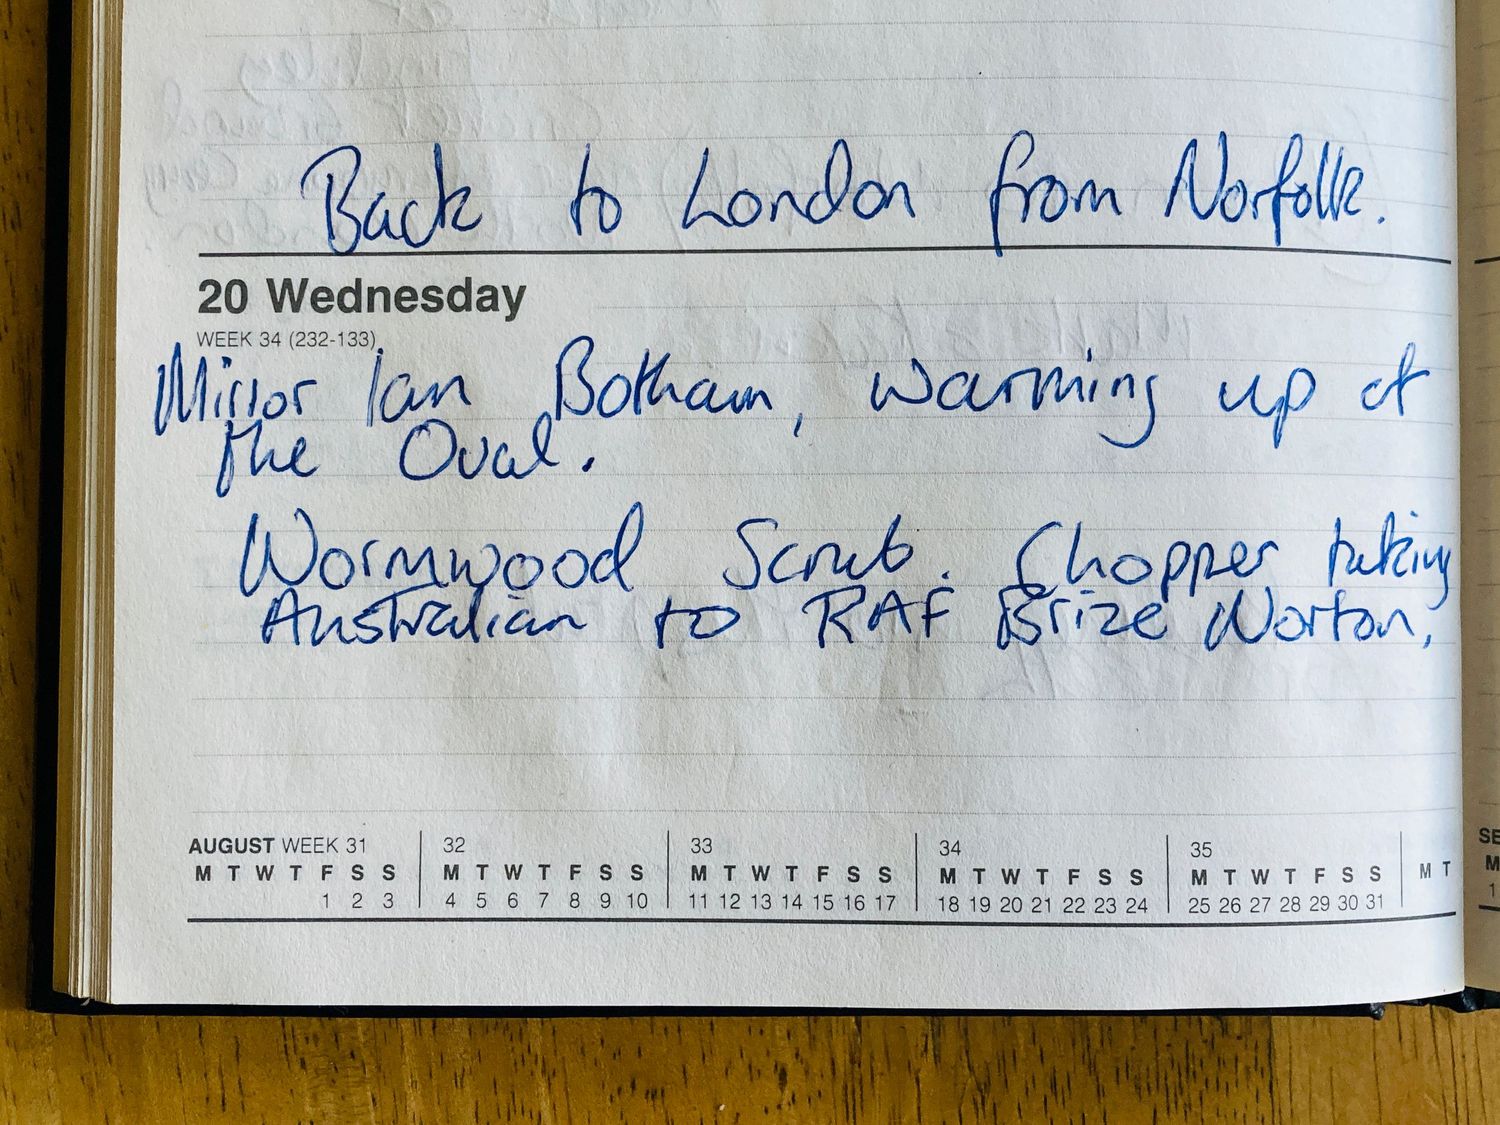 Back to London from Norfolk.
20 Wednesday
WEEK 34 (232-133)
Mirror Ian Botham, warming up at
the Oval.
Wormwood Scrub. Chopper taking
Australian to RAF Brize Norton,
AUGUST WEEK 31 32 33 34 35
M T W T F S S M T W T F S S M T W T F S S M T W T F S S M T W T F S S M T
1 2 3 4 5 6 7 8 9 10 11 12 13 14 15 16 17 18 19 20 21 22 23 24 25 26 27 28 29 30 31
SE
M
1